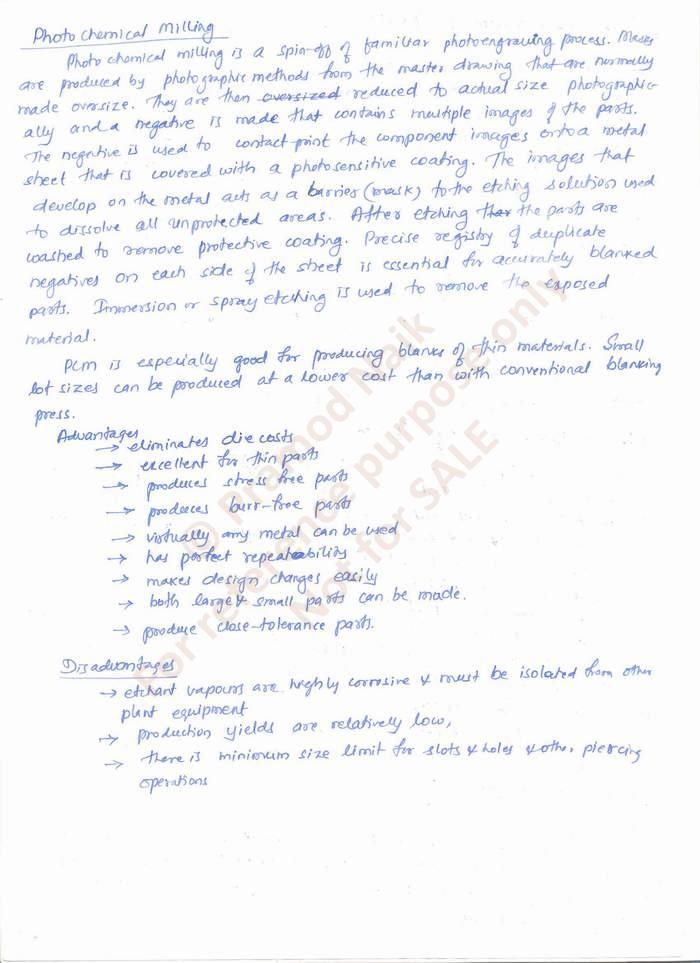 Photo chemical Milling
Photo chemical milling is a spin-off of familiar photoengraving process. Masks
are produced by photographic methods from the master drawing that are normally
made oversize. They are then oversized reduced to actual size photographic-
ally and a negative is made that contains multiple images of the parts.
The negative is used to contact-print the component images onto a metal
sheet that is covered with a photosensitive coating. The images that
develop on the metal acts as a barrier (mask) to the etching solution used
to dissolve all unprotected areas. After etching the parts are
washed to remove protective coating. Precise registry of duplicate
negatives on each side of the sheet is essential for accurately blanked
parts. Immersion or spray etching is used to remove the exposed
material.
PCM is especially good for producing blanks of thin materials. Small
lot sizes can be produced at a lower cost than with conventional blanking
press.
Advantages
→ eliminates die costs
→ excellent for thin parts
→ produces stress free parts
→ produces burr-free parts
→ virtually any metal can be used
→ has perfect repeatability
→ makes design changes easily
→ both large & small parts can be made.
→ produce close-tolerance parts.
Disadvantages
→ etchant vapours are highly corrosive & must be isolated from other
plant equipment
→ production yields are relatively low,
→ there is minimum size limit for slots & holes & other piercing
operations
© Pramod Naik
For reference purpose only
Not for SALE